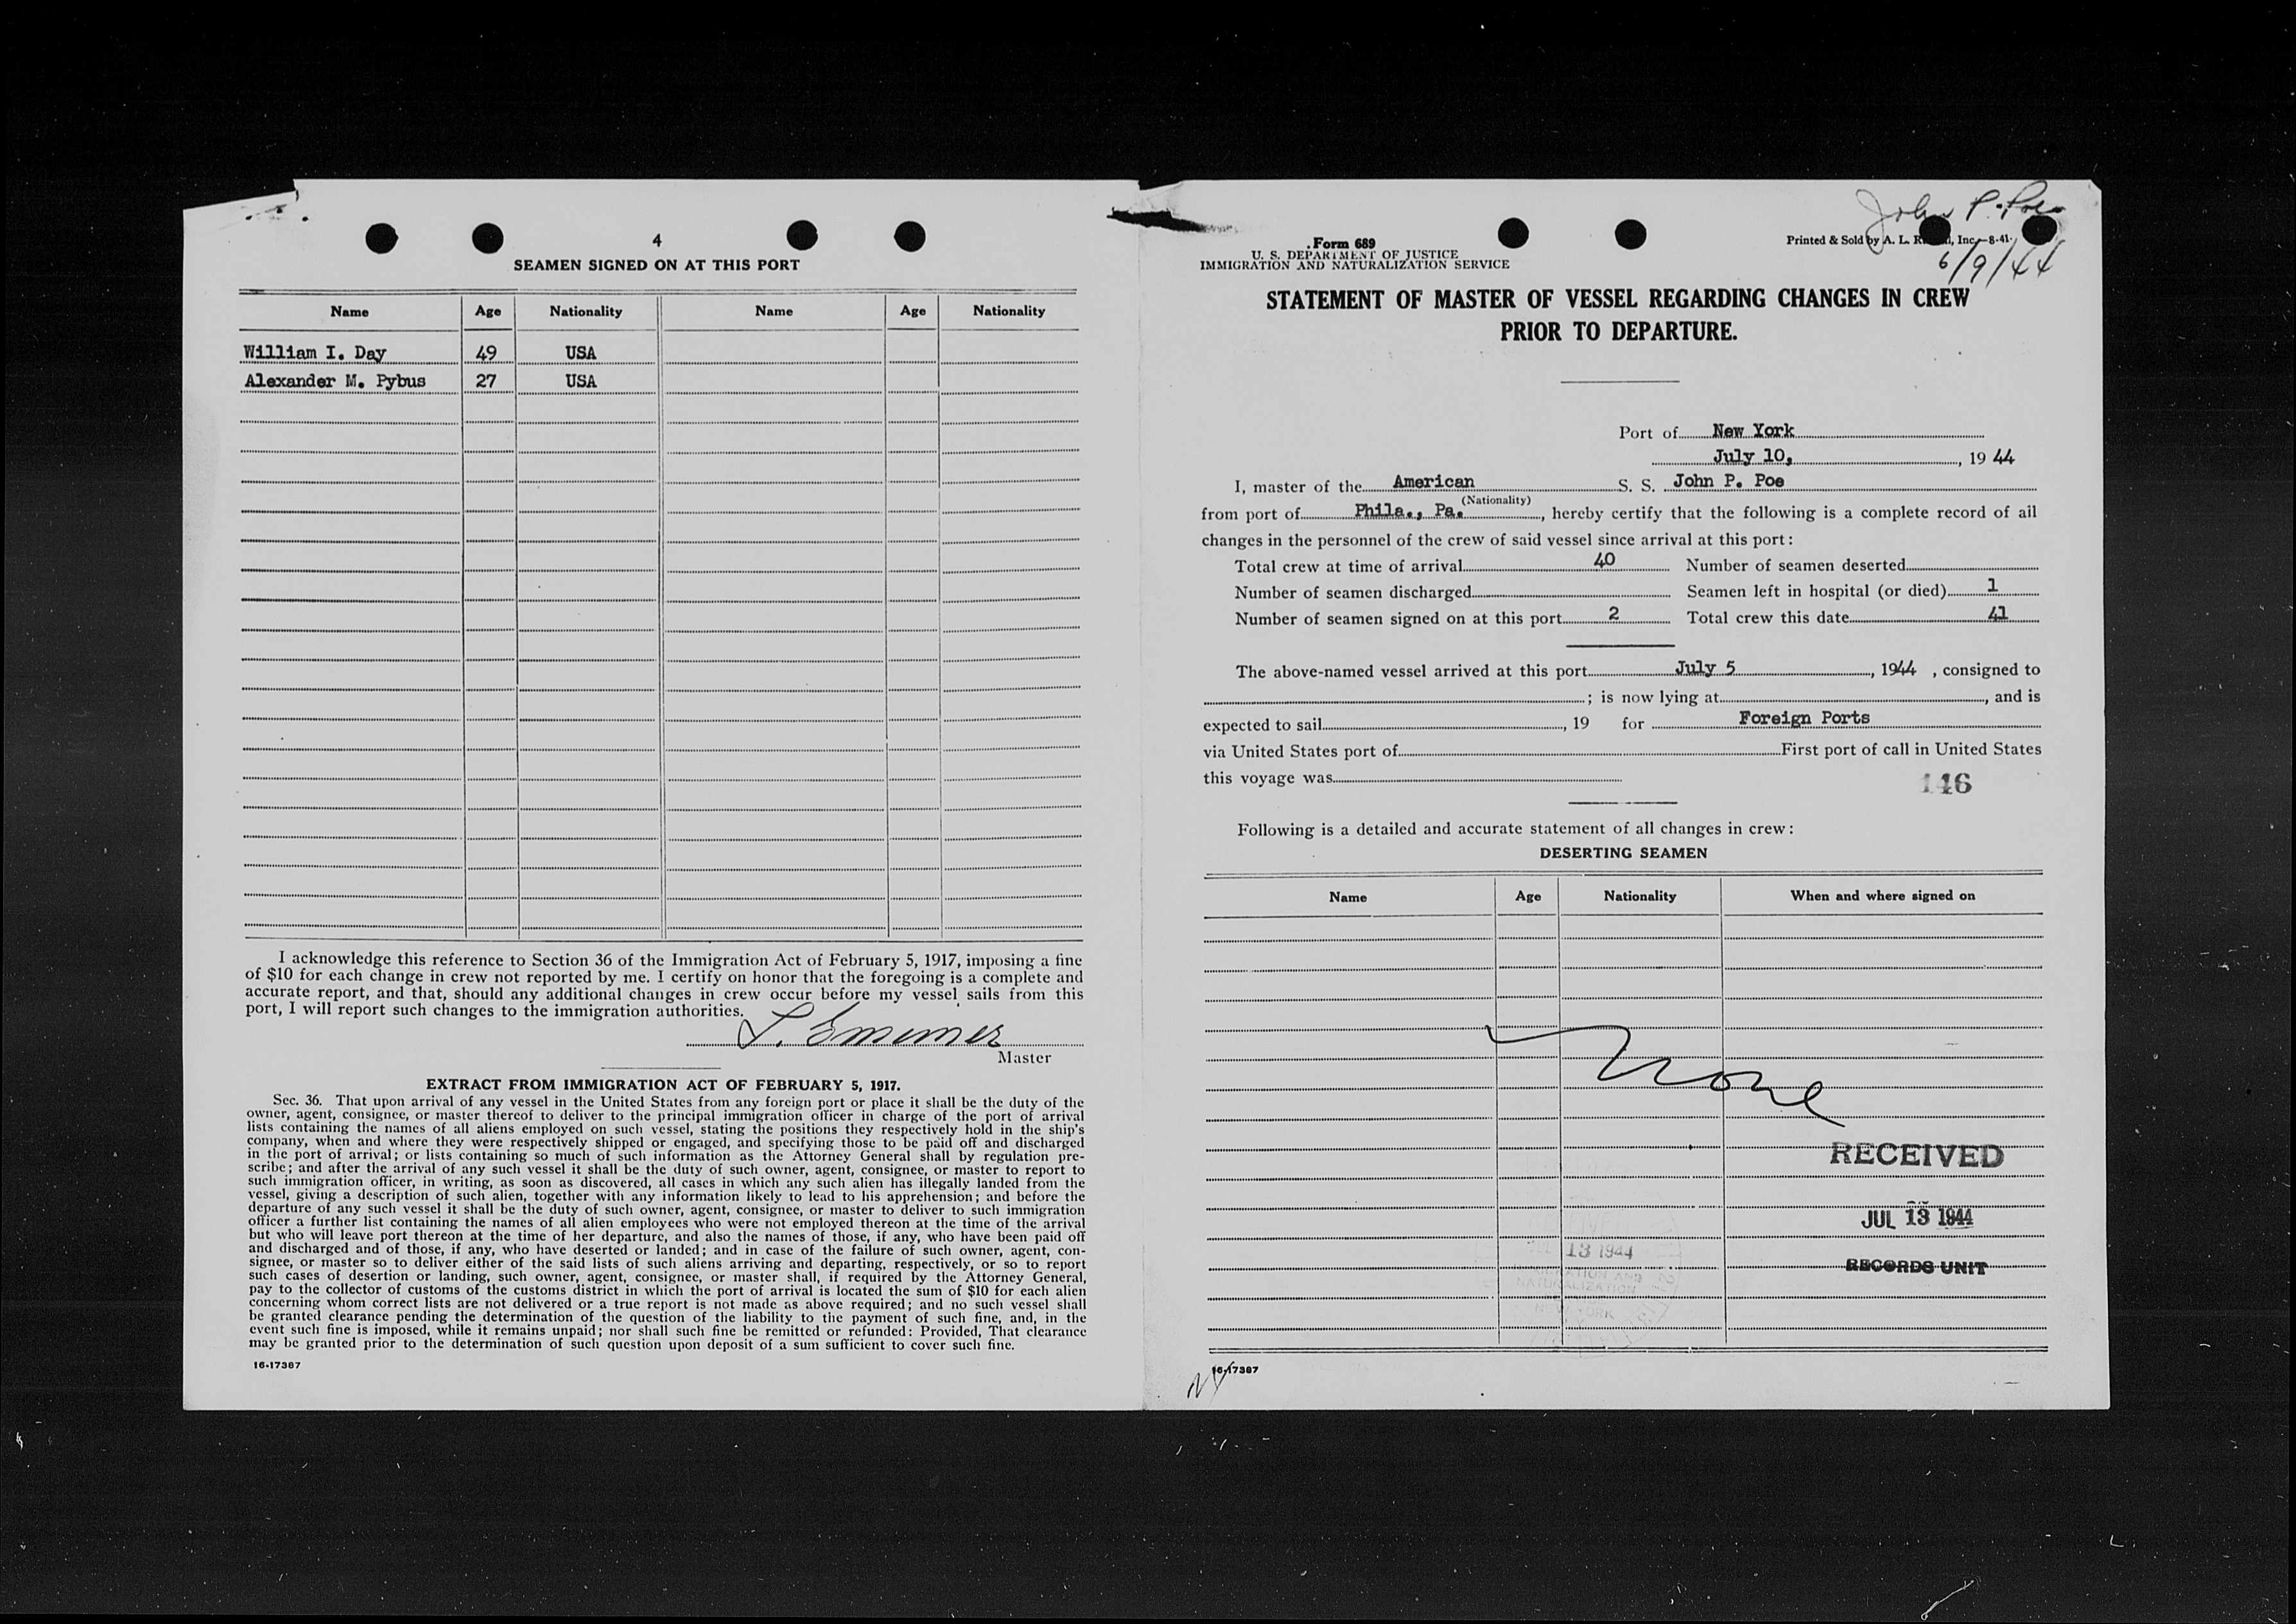 4
SEAMEN SIGNED ON AT THIS PORT
Name Age Nationality Name Age Nationality
William I. Day 49 USA
Alexander M. Pybus 27 USA
I acknowledge this reference to Section 36 of the Immigration Act of February 5, 1917, imposing a fine
of $10 for each change in crew not reported by me. I certify on honor that the foregoing is a complete and
accurate report, and that, should any additional changes in crew occur before my vessel sails from this
port, I will report such changes to the immigration authorities.
Master
EXTRACT FROM IMMIGRATION ACT OF FEBRUARY 5, 1917.
Sec. 36. That upon arrival of any vessel in the United States from any foreign port or place it shall be the duty of the
owner, agent, consignee, or master thereof to deliver to the principal immigration officer in charge of the port of arrival
lists containing the names of all aliens employed on such vessel, stating the positions they respectively hold in the ship's
company, when and where they were respectively shipped or engaged, and specifying those to be paid off and discharged
in the port of arrival; or lists containing so much of such information as the Attorney General shall by regulation pre-
scribe; and after the arrival of any such vessel it shall be the duty of such owner, agent, consignee, or master to report to
such immigration officer, in writing, as soon as discovered, all cases in which any such alien has illegally landed from the
vessel, giving a description of such alien, together with any information likely to lead to his apprehension; and before the
departure of any such vessel it shall be the duty of such owner, agent, consignee, or master to deliver to such immigration
officer a further list containing the names of all alien employees who were not employed thereon at the time of the arrival
but who will leave port thereon at the time of her departure, and also the names of those, if any, who have been paid off
and discharged and of those, if any, who have deserted or landed; and in case of the failure of such owner, agent, con-
signee, or master so to deliver either of the said lists of such aliens arriving and departing, respectively, or so to report
such cases of desertion or landing, such owner, agent, consignee, or master shall, if required by the Attorney General,
pay to the collector of customs of the customs district in which the port of arrival is located the sum of $10 for each alien
concerning whom correct lists are not delivered or a true report is not made as above required; and no such vessel shall
be granted clearance pending the determination of the question of the liability to the payment of such fine, and, in the
event such fine is imposed, while it remains unpaid; nor shall such fine be remitted or refunded: Provided, That clearance
may be granted prior to the determination of such question upon deposit of a sum sufficient to cover such fine.
16-17387
John P. Poe
6/9/44
Form 689
U. S. DEPARTMENT OF JUSTICE
IMMIGRATION AND NATURALIZATION SERVICE
Printed & Sold by A. L. Inc.-8-41
STATEMENT OF MASTER OF VESSEL REGARDING CHANGES IN CREW
PRIOR TO DEPARTURE.
Port of New York
July 10, , 19 44
I, master of the American S. S. John P. Poe
(Nationality)
from port of Phila., Pa. , hereby certify that the following is a complete record of all
changes in the personnel of the crew of said vessel since arrival at this port:
Total crew at time of arrival 40 Number of seamen deserted
Number of seamen discharged Seamen left in hospital (or died) 1
Number of seamen signed on at this port 2 Total crew this date 41
The above-named vessel arrived at this port July 5 , 1944 , consigned to
; is now lying at , and is
expected to sail , 19 for Foreign Ports
via United States port of First port of call in United States
this voyage was
146
Following is a detailed and accurate statement of all changes in crew:
DESERTING SEAMEN
Name Age Nationality When and where signed on
None
RECEIVED
JUL 13 1944
RECORDS UNIT
13 1944
NATURALIZATION
NEW YORK
16-17387
NY